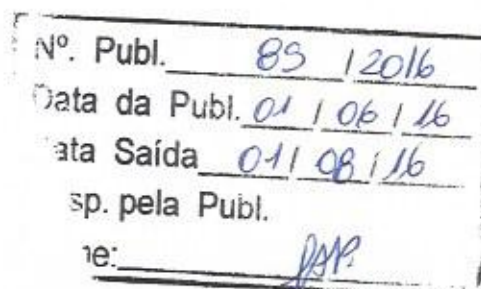 Nº. Publ. 89 / 2016
Data da Publ. 01 / 06 / 16
ata Saída 01 / 08 / 16
sp. pela Publ.
ne: